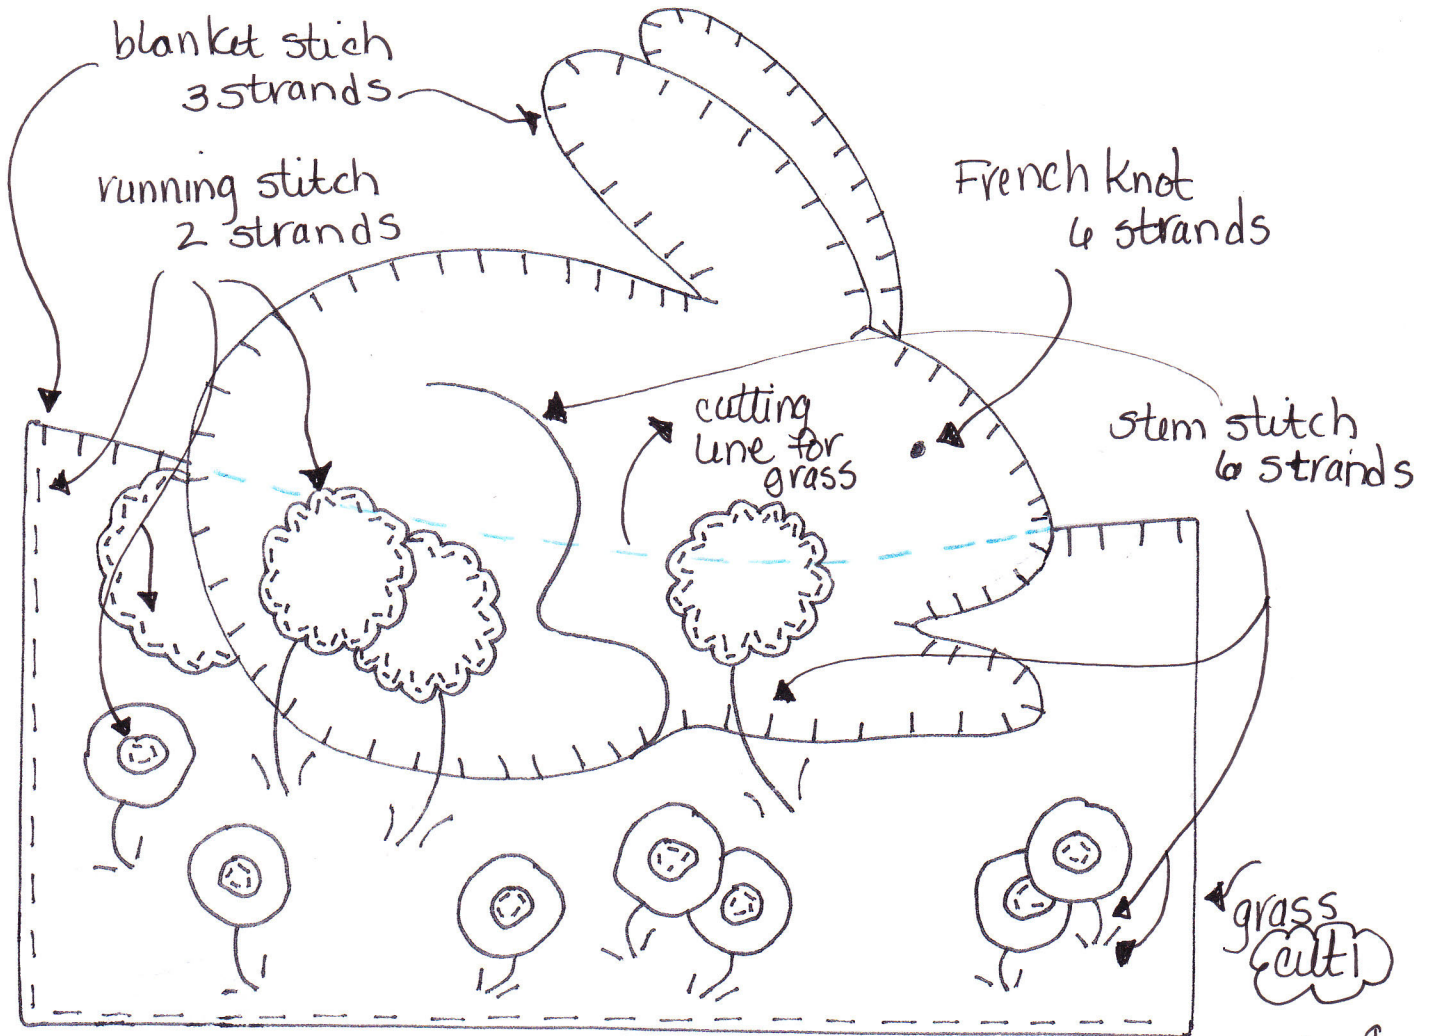 blanket stich
3 strands
running stitch
2 strands
French knot
6 strands
cutting
line for
grass
stem stitch
6 strands
grass
cut 1